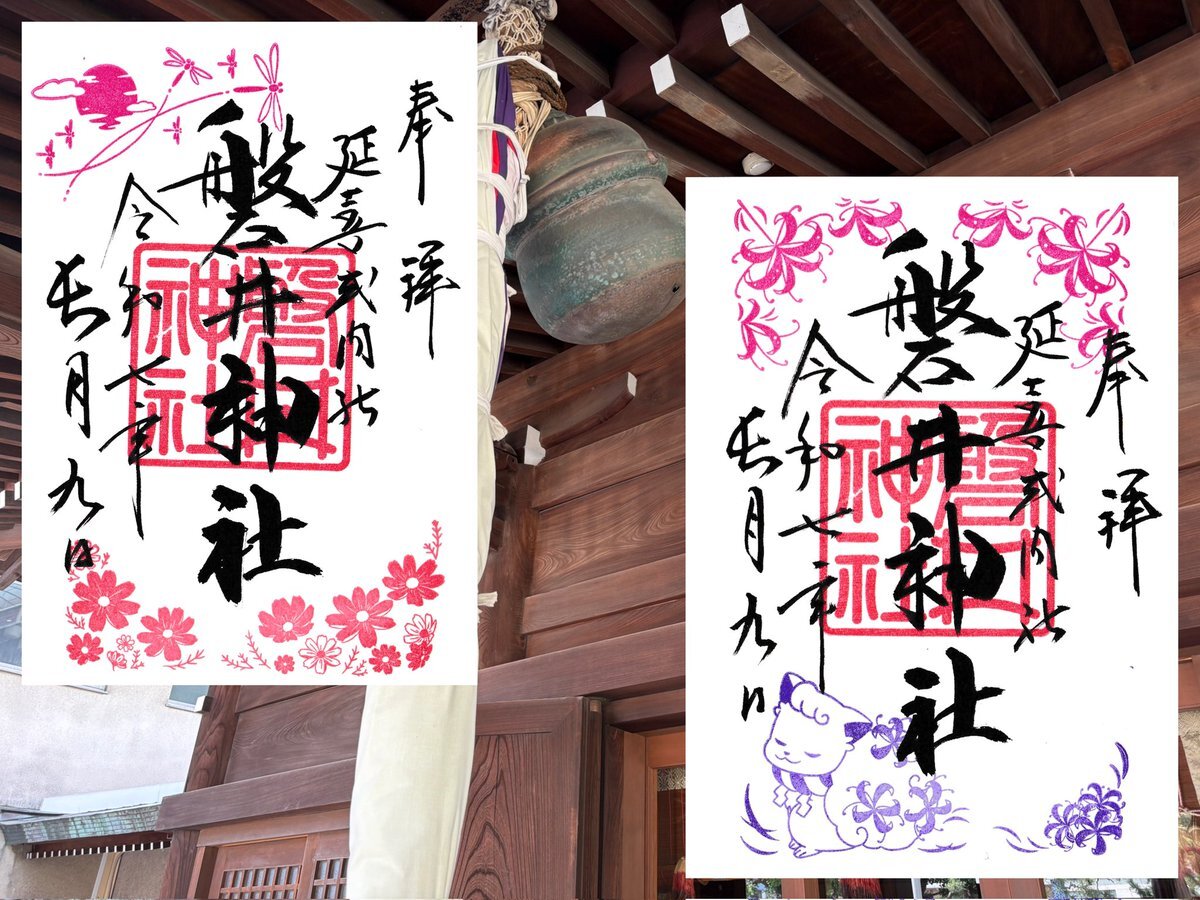 奉拝
延喜式内社
磐井神社
磐井神社
令和七年
長月九日
奉拝
延喜式内社
磐井神社
磐井神社
令和七年
長月九日